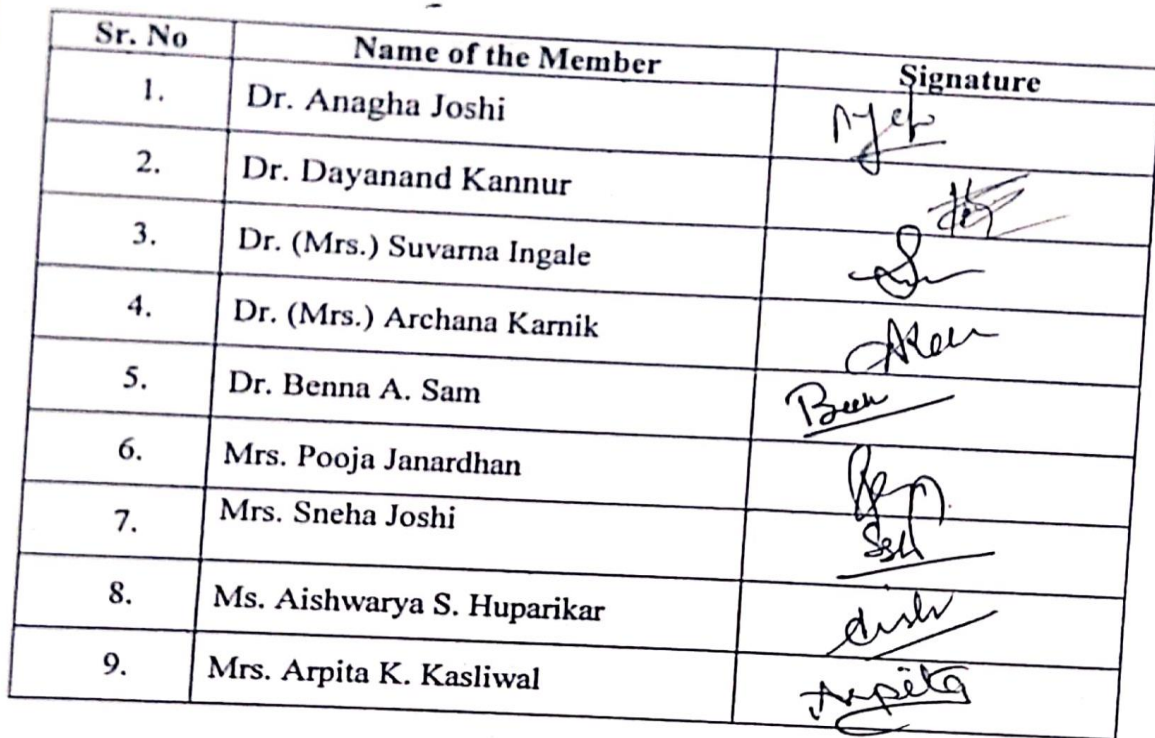 Sr. No Name of the Member Signature
1. Dr. Anagha Joshi
2. Dr. Dayanand Kannur
3. Dr. (Mrs.) Suvarna Ingale
4. Dr. (Mrs.) Archana Karnik
5. Dr. Benna A. Sam
6. Mrs. Pooja Janardhan
7. Mrs. Sneha Joshi
8. Ms. Aishwarya S. Huparikar
9. Mrs. Arpita K. Kasliwal Arpita